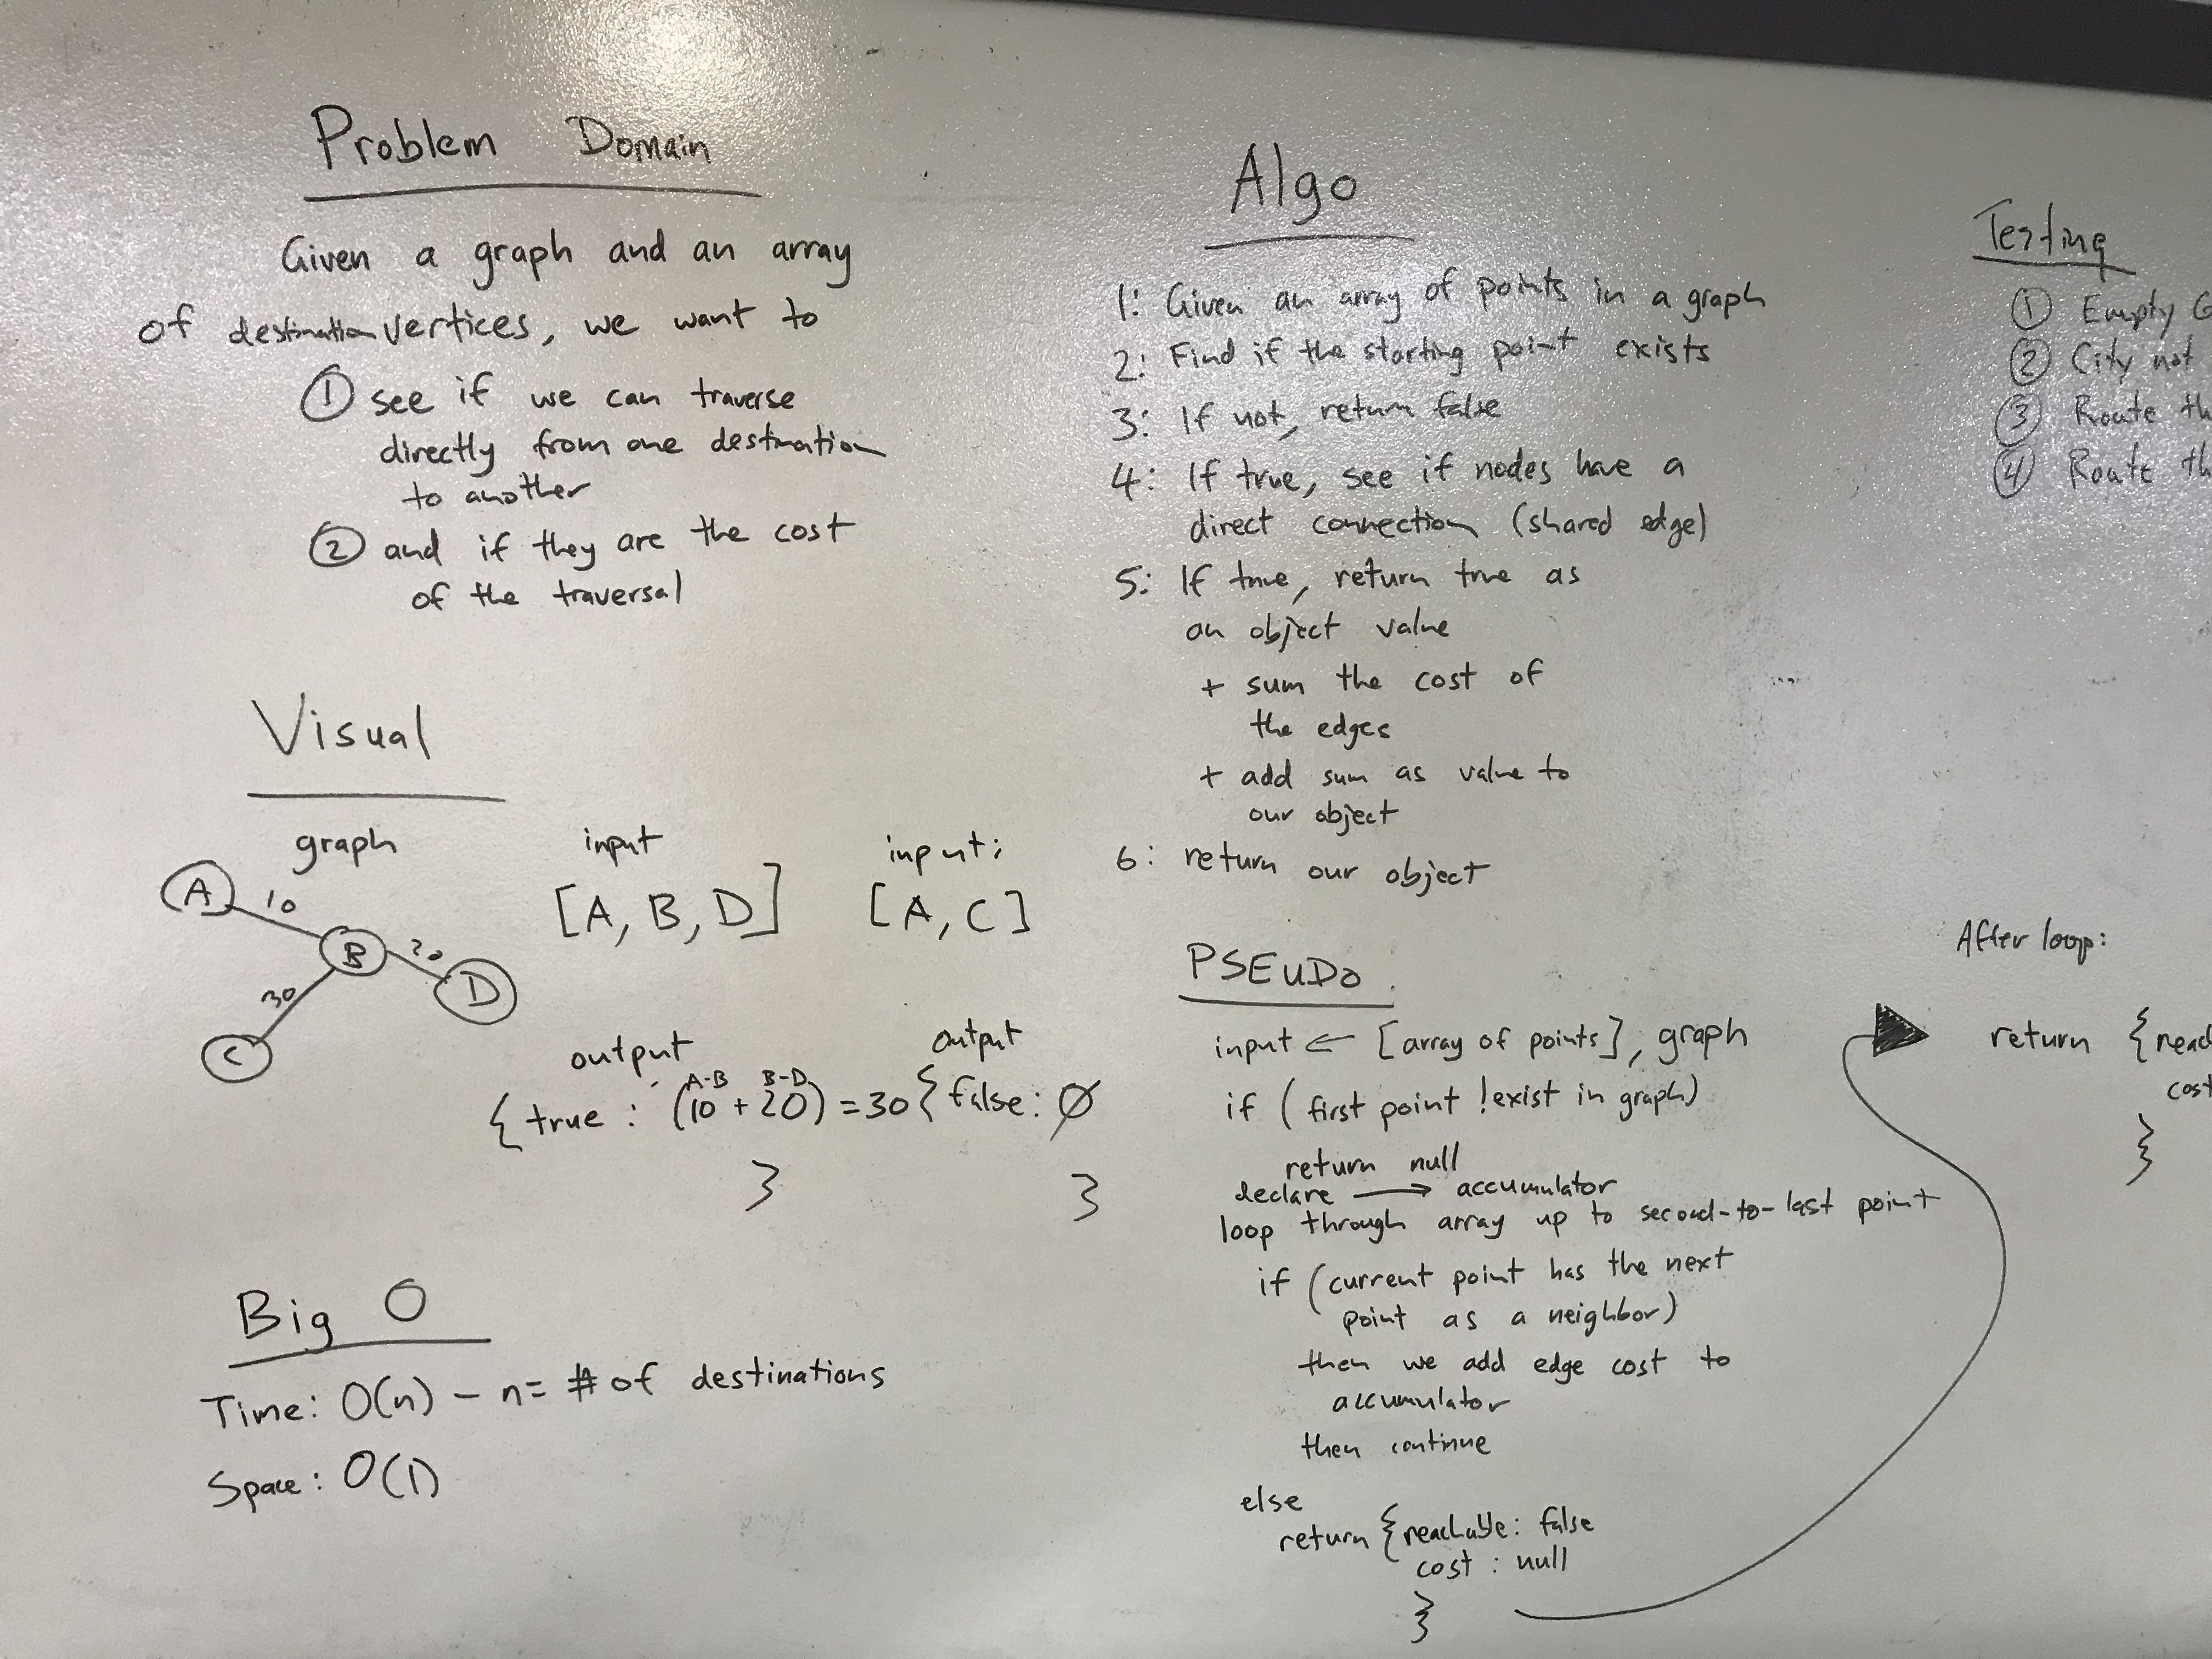 Problem Domain
Given a graph and an array
of destination vertices, we want to
① see if we can traverse
directly from one destination
to another
② and if they are the cost
of the traversal
Visual
graph
A
10
B
20
D
30
C
input
[A, B, D]
input:
[A, C]
output
A-B B-D
{ true : (10 + 20) = 30
}
output
{ false: Ø
}
Big O
Time: O(n) - n = # of destinations
Space: O(1)
Algo
1: Given an array of points in a graph
2: Find if the starting point exists
3: If not, return false
4: If true, see if nodes have a
direct connection (shared edge)
5: If true, return true as
an object value
+ sum the cost of
the edges
+ add sum as value to
our object
6: return our object
PSEUDO
input ← [array of points], graph
if (first point !exist in graph)
return null
declare → accumulator
loop through array up to second-to-last point
if (current point has the next
point as a neighbor)
then we add edge cost to
accumulator
then continue
else
return { reachable: false
cost : null
}
Testing
① Empty G
② City not
③ Route th
④ Route th
After loop:
return { reac
cost
}